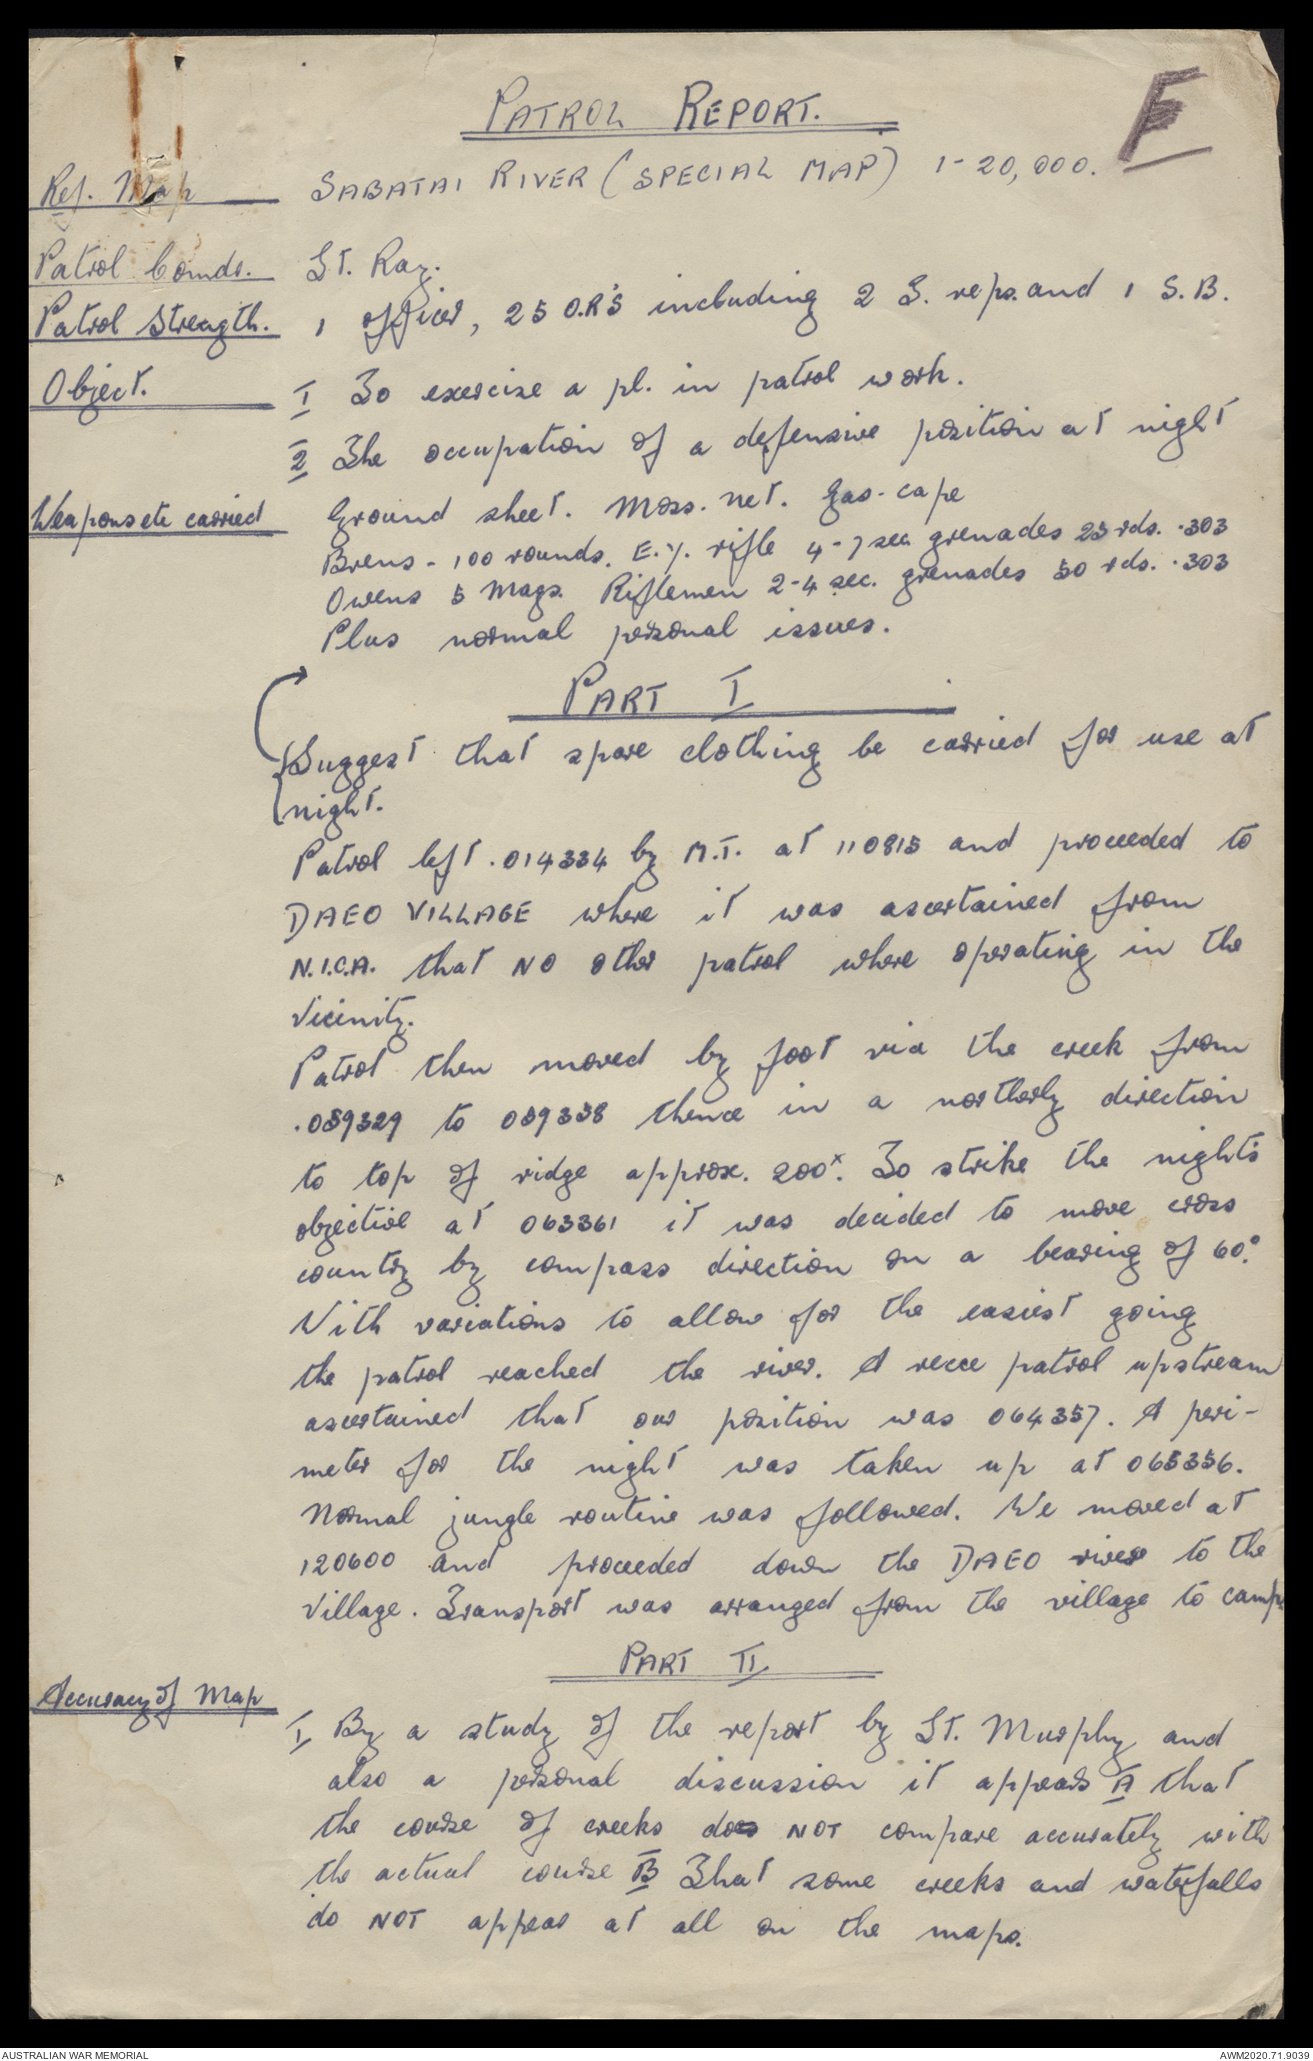 PATROL REPORT.
F
Ref. Map SABATAI RIVER (SPECIAL MAP) 1-20,000.
Patrol Comds. Lt. Ray.
Patrol Strength. 1 officer, 25 O.R'S including 2 S. reps. and 1 S.B.
Object. I To exercise a pl. in patrol work.
2 The occupation of a defensive position at night
Weapons etc carried Ground sheet. Moss. net. Gas-cape
Brens - 100 rounds. E.Y. rifle 4-7 sec grenades 25 rds. .303
Owens 5 Mags. Riflemen 2-4 sec. grenades 50 rds. .303
Plus normal personal issues.
PART I
Suggest that spare clothing be carried for use at
night.
Patrol left .014334 by M.T. at 110815 and proceeded to
DAEO VILLAGE where it was ascertained from
N.I.C.A. that NO other patrol where operating in the
vicinity.
Patrol then moved by foot via the creek from
.059329 to 059338 thence in a northerly direction
to top of ridge approx. 200x. To strike the nights
objective at 063361 it was decided to move cross
country by compass direction on a bearing of 60°.
With variations to allow for the easiest going
the patrol reached the river. A recce patrol upstream
ascertained that our position was 064357. A peri-
meter for the night was taken up at 065356.
Normal jungle routine was followed. We moved at
120600 and proceeded down the DAEO river to the
village. Transport was arranged from the village to camp.
PART II
Accuracy of Map
I By a study of the report by Lt. Murphy and
also a personal discussion it appears A that
the course of creeks does NOT compare accurately with
the actual course B That some creeks and waterfalls
do NOT appear at all on the maps.
AUSTRALIAN WAR MEMORIAL
AWM2020.71.9039